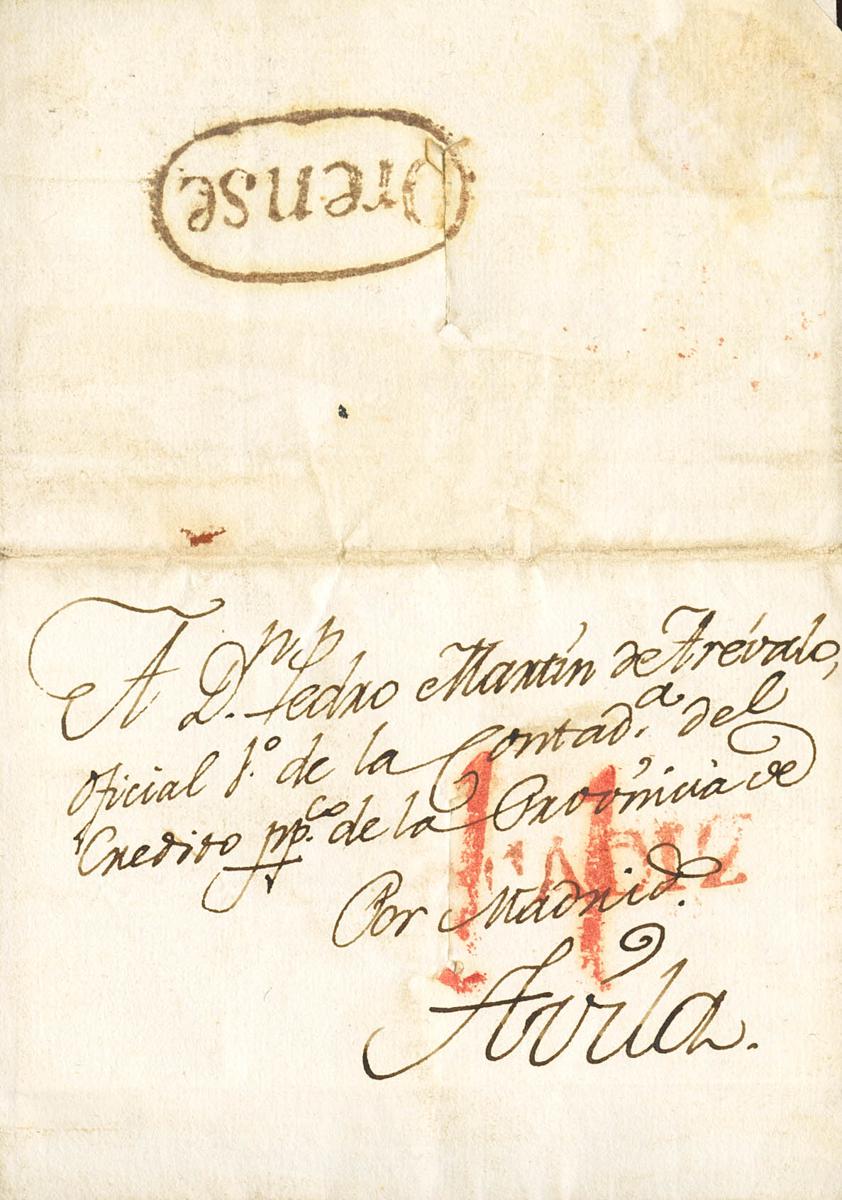 Orense
A D.ⁿ Pedro Martin de Arévalo,
Oficial 1.º de la Contad.ª del
Credito pp.co de la Provincia de
CADIZ
Por Madrid.
Avila.